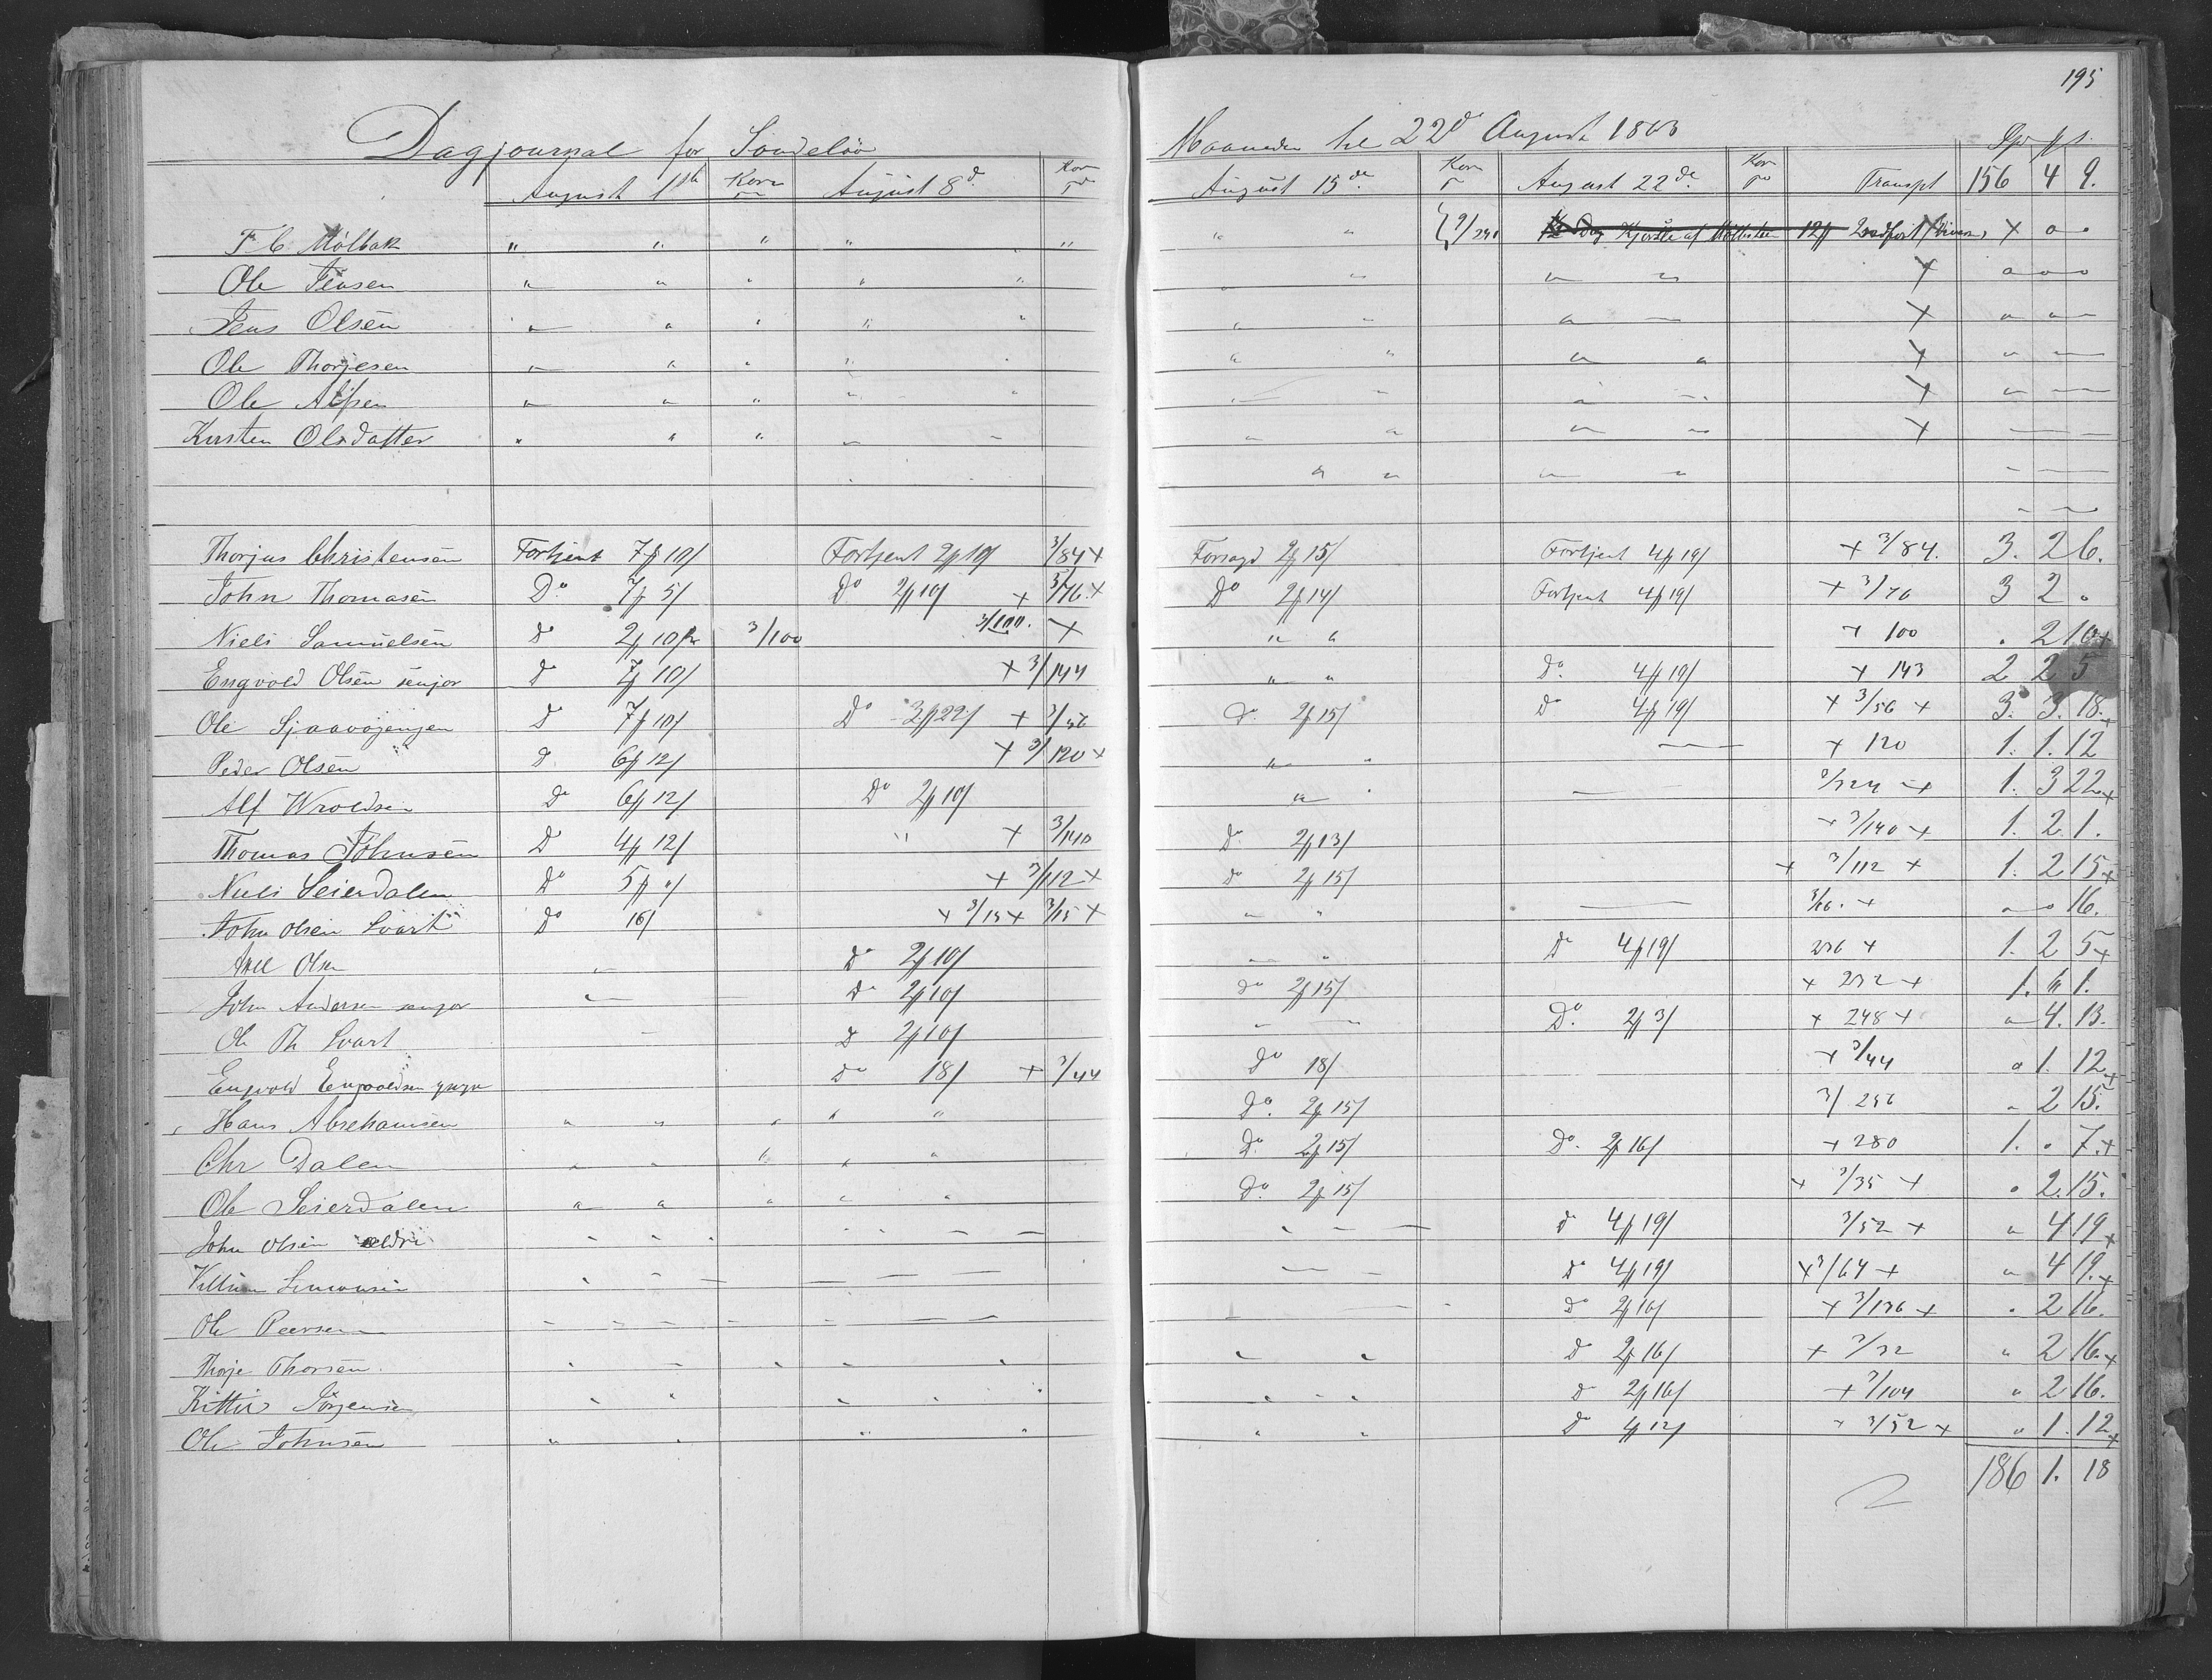 195
Dagjournal for Sondeløv Maaneden til 22d August 1863
August 1ste Korn August 8d. Korn August 15de Korn August 22de Korn Transpt 156 4 9.
F C Mölbak " " " " " " " 12ß × " "
Ole Jensen " " " " " " " " " × " " "
Jens Olsen " " " " " " " " × " "
Ole Thorjesen " " " " " " " " " × " "
Ole Alfsen " " " " " " " × " "
Kirsten Olsdatter " " " " " " " " "
Thorjus Christensen Fortjent 7 10/ Fortjent 2 10/ 3/84 × Forsagd 2 15/ Fortjent 4 19/ × 3/84. 3. 2 6.
John Thomasen Do 7 5/ Do 2 10/ × 3/76 × Do 2 14/ Fortjent 4 19/ × 3/76 3 2 "
Niels Samuelsen Do 2 10 3/100 3/100. × " " × 100 " 2 10 ×
Engvold Olsen senjor Do 7 10/ × 3/144 " " Do. 4 19/ × 143 2 2 5
Ole Sjaavøjenjen Do 7 10/ Do 3 22/ × 3/56 Do. 2 15/ Do 4 19/ × 3/56 × 3. 3. 18. ×
Peder Olsen Do 6 12/ × 3/120 × " " × 120 1. 1. 12
Alf Wroldsen Do 6 12/ Do 2 10/ " " 3/324 × 1. 3 22 ×
Thomas Johnsen Do 4 12/ " × 3/140 Do. 2 13/ × 3/140 × 1. 2. 1.
Niels Seierdalen Do 5 "/ × 3/112 × Do 2 15/ × 3/112 × 1. 2 15 ×
John Olsen Svart Do 16/ × 3/15 × 3/15 × " " 3/16. × " " 16.
Axel Olsen " Do 2 10/ " " Do 4 19/ 236 × 1. 2 5 ×
John Andersen senjor " Do 2 10/ Do 2 15/ × 232 × 1. " 1.
Ole Th Svart Do 2 10/ Do. 2 3/ × 248 × " 4. 13.
Engvold Engvoldsen Do 18/ × 3/44 Do 18/ × 3/44 " 1. 12 ×
Hans Abrehamsen " " " " " Do. 2 15/ 3/256 " 2 15.
Chr Dalen " " " " " Do. 2 15/ Do. 2 16/ × 280 1. " 7. ×
Ole Seierdalen " " " " " Do. 2 15/ × 3/35 × " 2. 15.
John Olsen ældri " " " " Do 4 19/ 3/52 × " 4 19 ×
Villum Simonsen " Do 4 19/ × 3/64 × " 4 19. ×
Ole Peersen Do 2 16/ × 3/136 × " 2 16.
Thorje Thorsen " " " " Do 2 16/ × 3/32 " 2 16. ×
Kittil Jörgensen " " " " " " Do 2 16/ × 3/104 " 2 16.
Ole Johnsen " " " " " " Do 1 12/ × 3/52 × " 1. 12 ×
186 1. 18